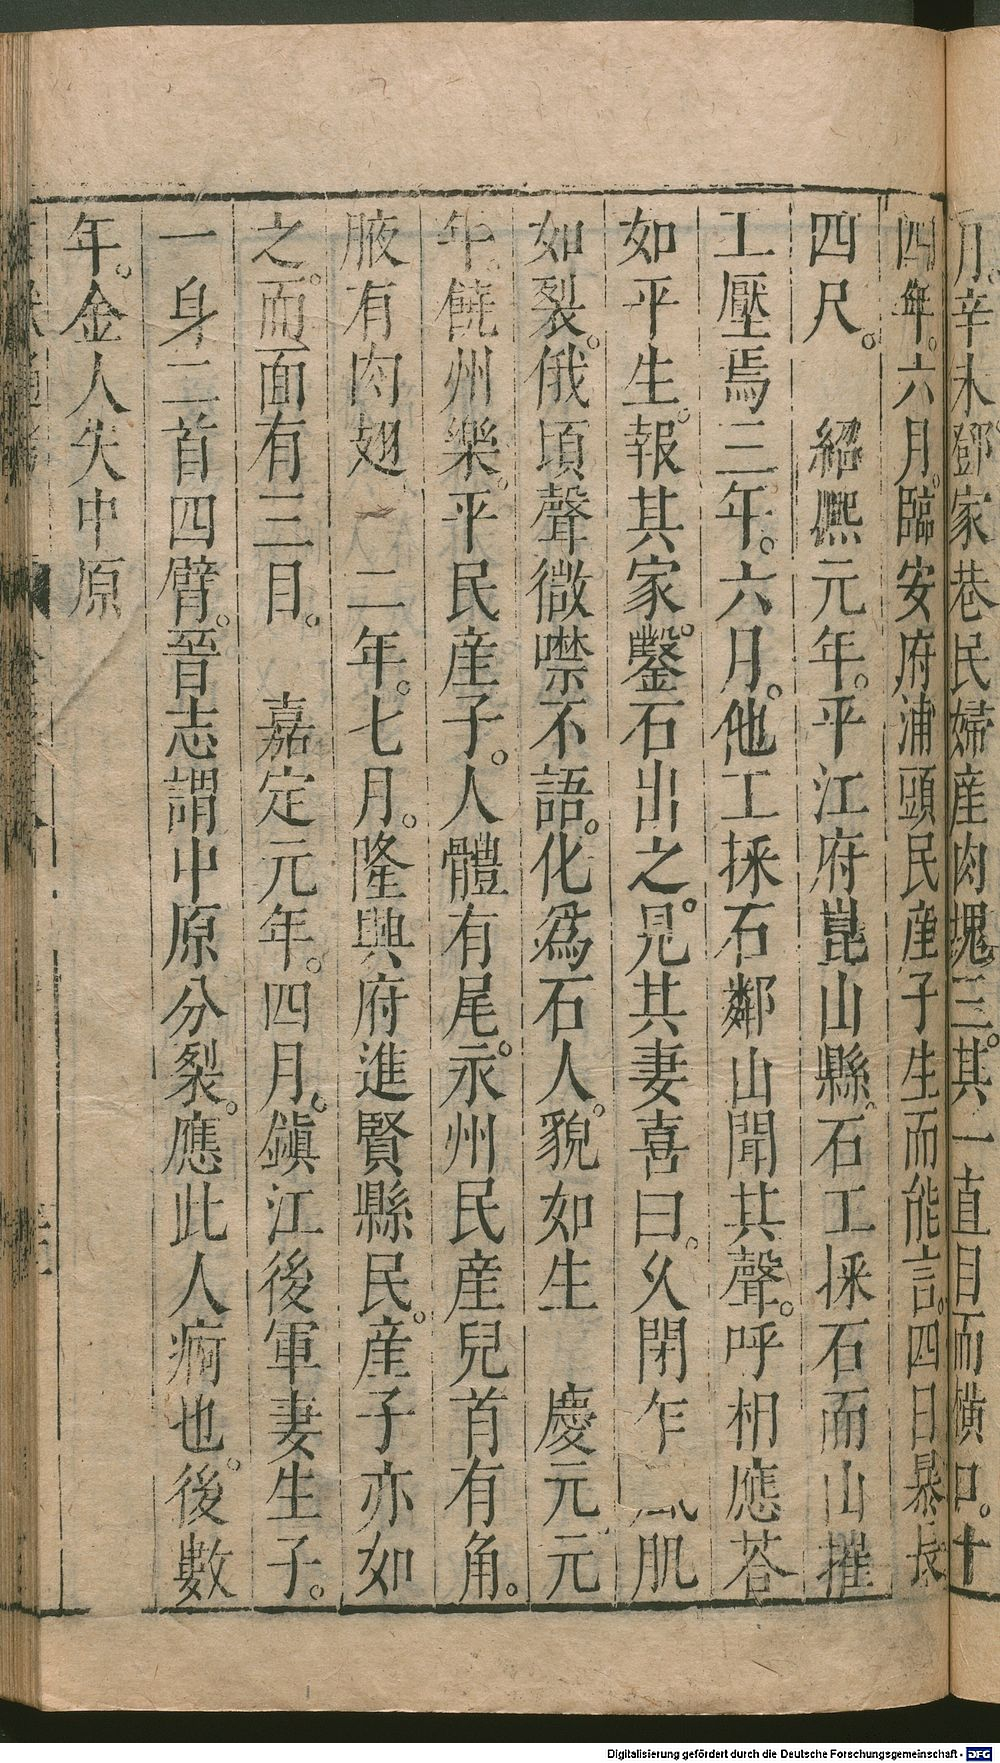 月辛未鄧家巷民婦産肉塊三其一直目而横口。十
四年。六月。臨安府浦頭民産子生而能言。四日暴長
四尺。　紹熈元年。平江府崑山縣。石工採石而山摧
工壓焉三年。六月。他工採石鄰山聞其聲。呼相應荅
如平生。報其家。鑿石出之。見其妻喜曰。乆閉乍風肌
如裂。俄頃聲微噤不語。化爲石人。貌如生　慶元元
年。饒州樂平民産子。人體有尾。永州民産兒首有角。
腋有肉翅　二年。七月。隆興府進賢縣民。産子亦如
之。而面有三目。　嘉定元年。四月。鎭江後軍妻生子。
一身二首四臂。晉志謂中原分裂。應此人痾也。後數
年。金人失中原
Digitalisierung gefördert durch die Deutsche Forschungsgemeinschaft - DFG